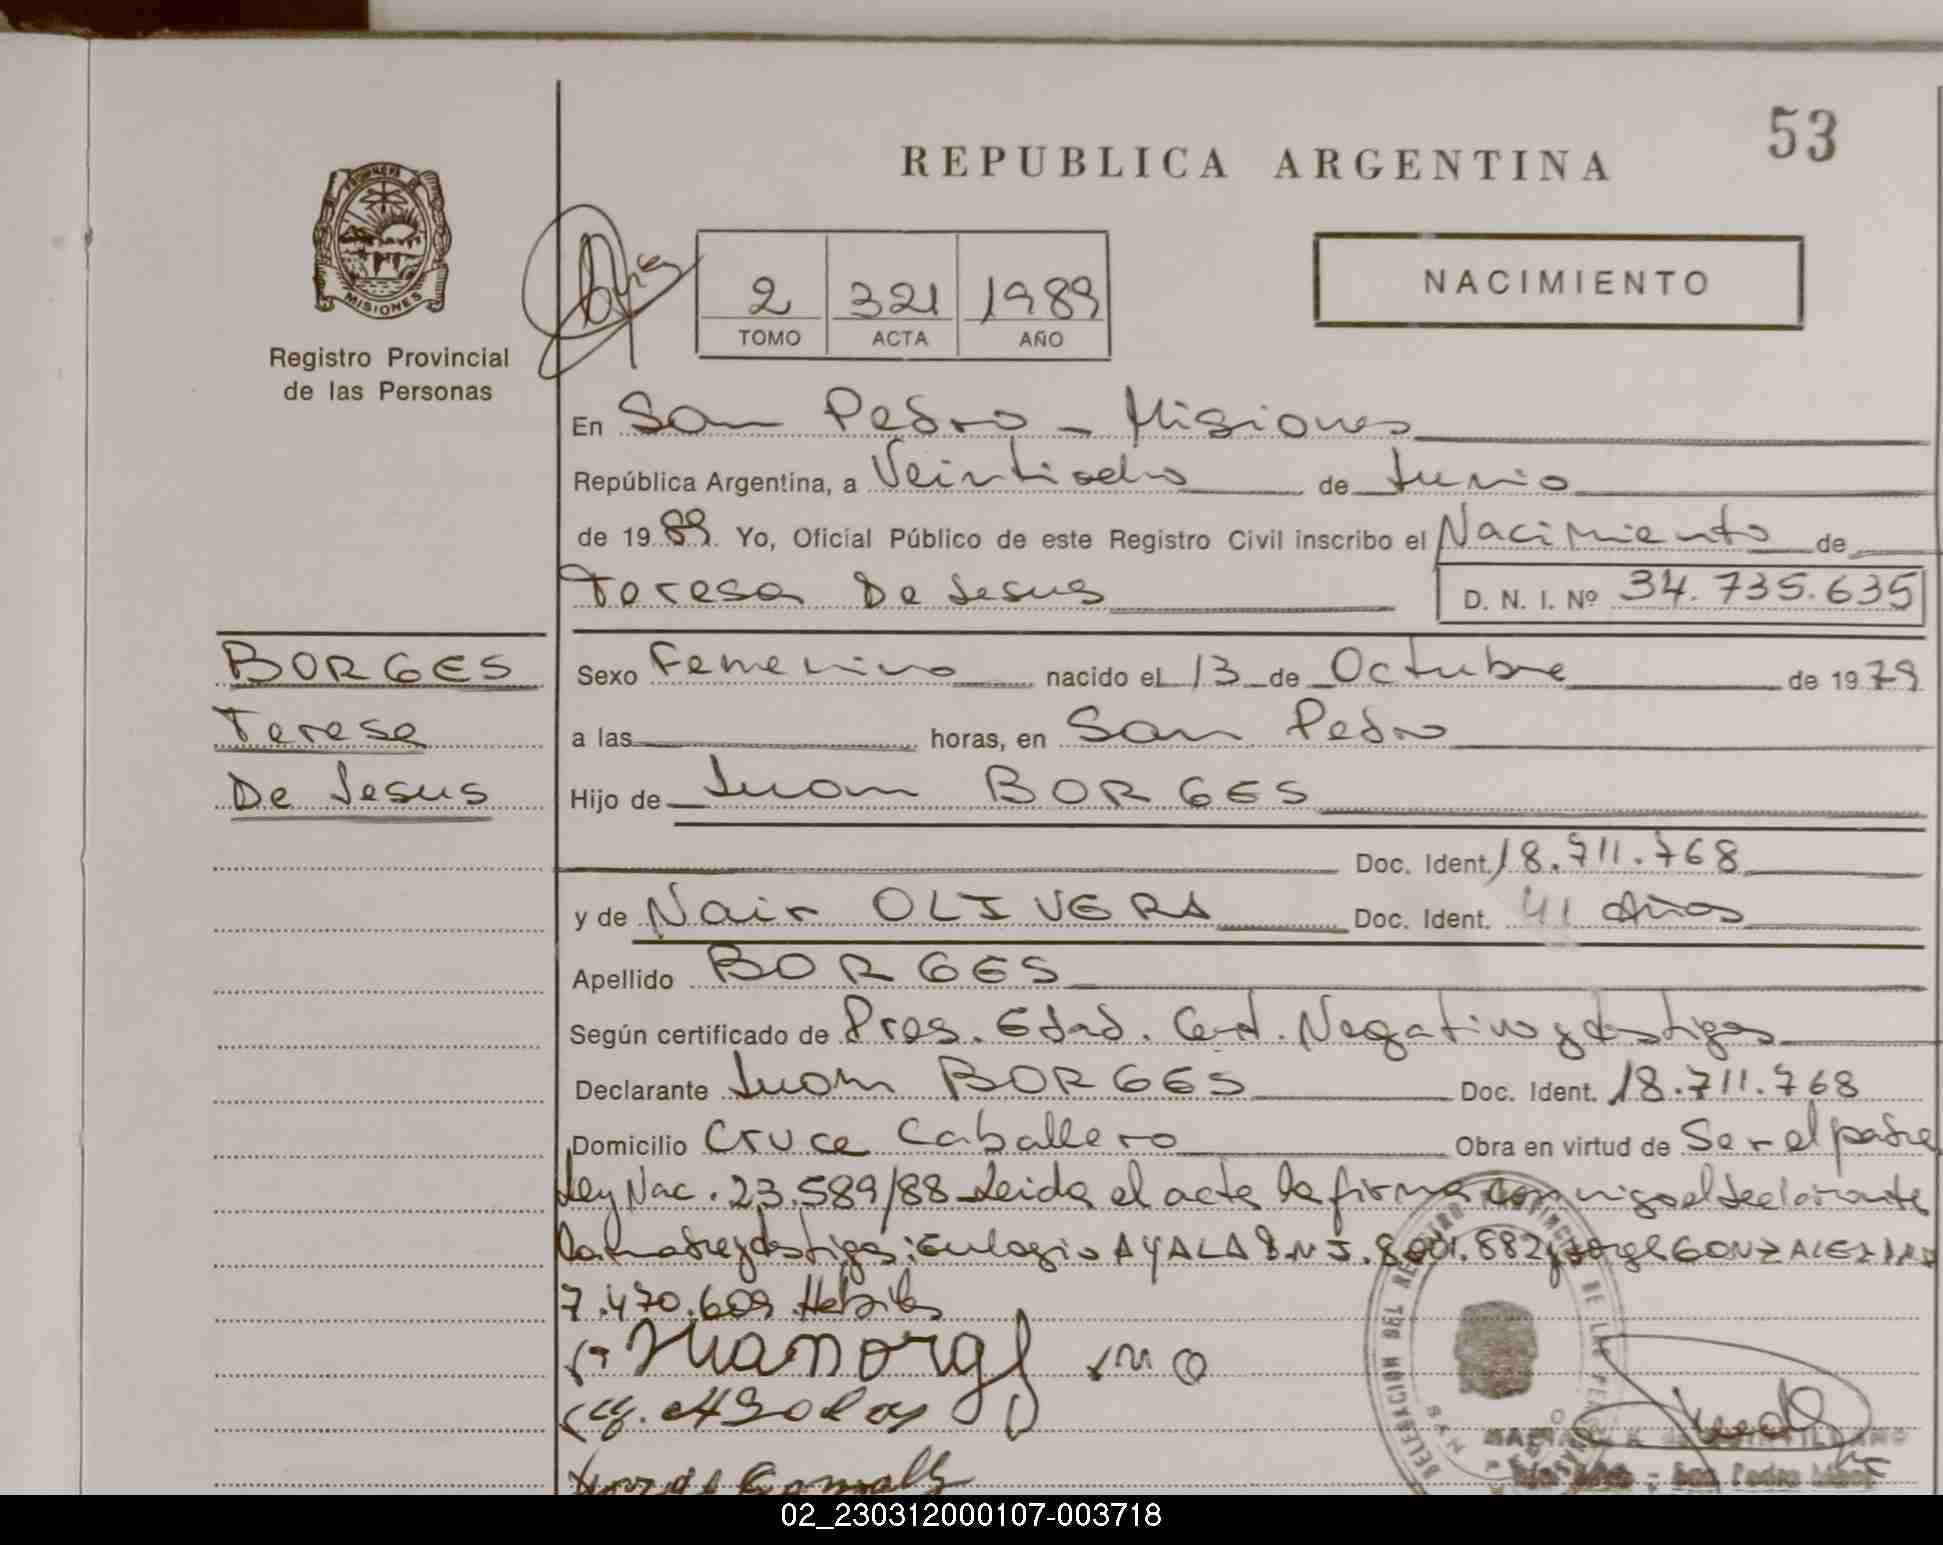 53
REPUBLICA ARGENTINA
PROVINCIA DE
MISIONES
Registro Provincial
de las Personas
2 321 1989
TOMO ACTA AÑO
NACIMIENTO
En San Pedro - Misiones
República Argentina, a Veintiocho de Junio
de 1989. Yo, Oficial Público de este Registro Civil inscribo el Nacimiento de
Teresa De Jesus D. N. I. Nº 34.735.635
BORGES
Teresa
De Jesus
Sexo Femenino nacido el 13 de Octubre de 1979
a las horas, en San Pedro
Hijo de Juan BORGES
Doc. Ident. 18.711.768
y de Nair OLIVERA Doc. Ident. 41 Años
Apellido BORGES
Según certificado de Pres. Edad. Cert. Negativo y testigos
Declarante Juan BORGES Doc. Ident. 18.711.768
Domicilio Cruce Caballero Obra en virtud de Ser el padre
Ley Nac. 23.589/88 Leida el acta la firma conmigo el declarante
la madre y testigos: Eulogio AYALA D.N.I. 8.001.882 y Jorge GONZALEZ DNI
7.470.609 Habiles
DELEGACION DEL REGISTRO PROVINCIAL DE LAS PERSONAS
02_230312000107-003718